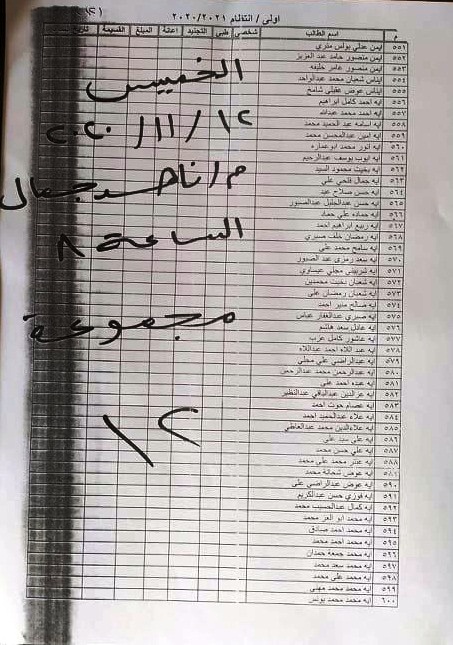 اولى / انتظام ٢٠٢٠/٢٠٢١
م اسم الطالب شخصى طبى التجنيد اعانة المبلغ القسيمة
٥٥١ ايمن عدلي بولس متري
٥٥٢ ايمن منصور حامد عبد العزيز
٥٥٣ ايمن منصور عامر خليفه
٥٥٤ ايناس شعبان محمد عبدالواحد
٥٥٥ ايناس عوض عقيلى شامخ
٥٥٦ ايه احمد كامل ابراهيم
٥٥٧ ايه احمد محمد عبدالله
٥٥٨ ايه اسامه عبد الحميد محمد
٥٥٩ ايه امين عبدالمحسن محمد
٥٦٠ ايه انور محمد ابوعماره
٥٦١ ايه ايوب يوسف عبدالرحيم
٥٦٢ ايه بخيت محمود السيد
٥٦٣ ايه جمال فتحي علي
٥٦٤ ايه حسن صلاح عيد
٥٦٥ ايه حسن عبدالجليل عبدالصبور
٥٦٦ ايه حماده علي حماد
٥٦٧ ايه ربيع ابراهيم احمد
٥٦٨ ايه رمضان خلف صبري
٥٦٩ ايه سامح محمد على
٥٧٠ ايه سعد رمزى عبد الصبور
٥٧١ ايه شربيني مجلي عيساوي
٥٧٢ ايه شعبان بخيت محمدين
٥٧٣ ايه شعبان رمضان على
٥٧٤ ايه صالح منير احمد
٥٧٥ ايه صبري عبدالغفار عباس
٥٧٦ ايه عادل سعد هاشم
٥٧٧ ايه عاشور كامل عزب
٥٧٨ ايه عبد اللاه احمد عبداللاه
٥٧٩ ايه عبدالراضي علي محلي
٥٨٠ ايه عبدالرحمن محمد عبدالرحمن
٥٨١ ايه عبده احمد على
٥٨٢ ايه عزالدين عبدالباقي عبدالنظير
٥٨٣ ايه عصام حوت احمد
٥٨٤ ايه علاء عبدالحميد احمد
٥٨٥ ايه علاءالدين محمد عبدالعاطي
٥٨٦ ايه علي سيد علي
٥٨٧ ايه علي حسن محمد
٥٨٨ ايه عنتر محمد على محمد
٥٨٩ ايه عوض شحاتة محمد
٥٩٠ ايه عوض عبدالراضي على
٥٩١ ايه فوزي حسن عبدالكريم
٥٩٢ ايه كمال عبدالحسيب محمد
٥٩٣ ايه محمد ابو العز محمد
٥٩٤ ايه محمد احمد صادق
٥٩٥ ايه محمد احمد محمد
٥٩٦ ايه محمد جمعة حمدان
٥٩٧ ايه محمد سعد محمد
٥٩٨ ايه محمد علي محمد
٥٩٩ ايه محمد محمد مهنى
٦٠٠ ايه محمد محمد يونس
الخميس
١٢ / ١١ / ٢٠٢٠
م / ناصر جمال
الساعة ٨
مجموعة
١٢